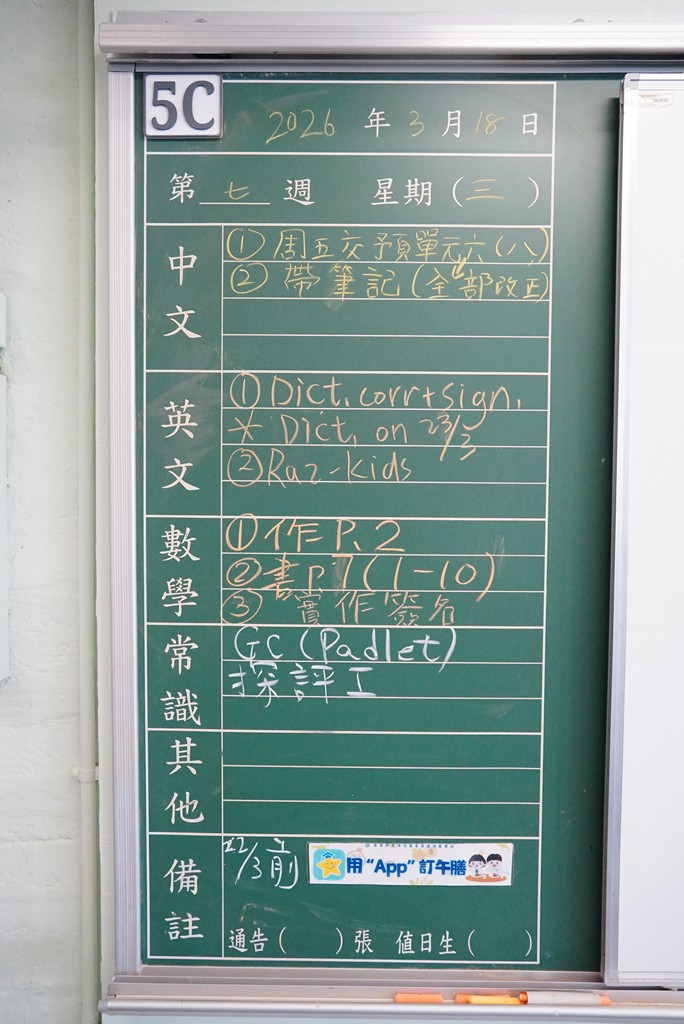 5C
2026 年 3 月 18 日
第 七 週 星期 (三)
中文
① 周五交預單元六(八)
② 帶筆記(全部改正)
英文
① Dict. corr + sign.
* Dict. on 23/3
② Raz-kids
數學
① 作 P. 2
② 書 P 7 (1-10)
③ 實作簽名
常識
GC (Padlet)
探評工
其他
備註
22/3前
用“App”訂午膳
通告( )張 值日生( )